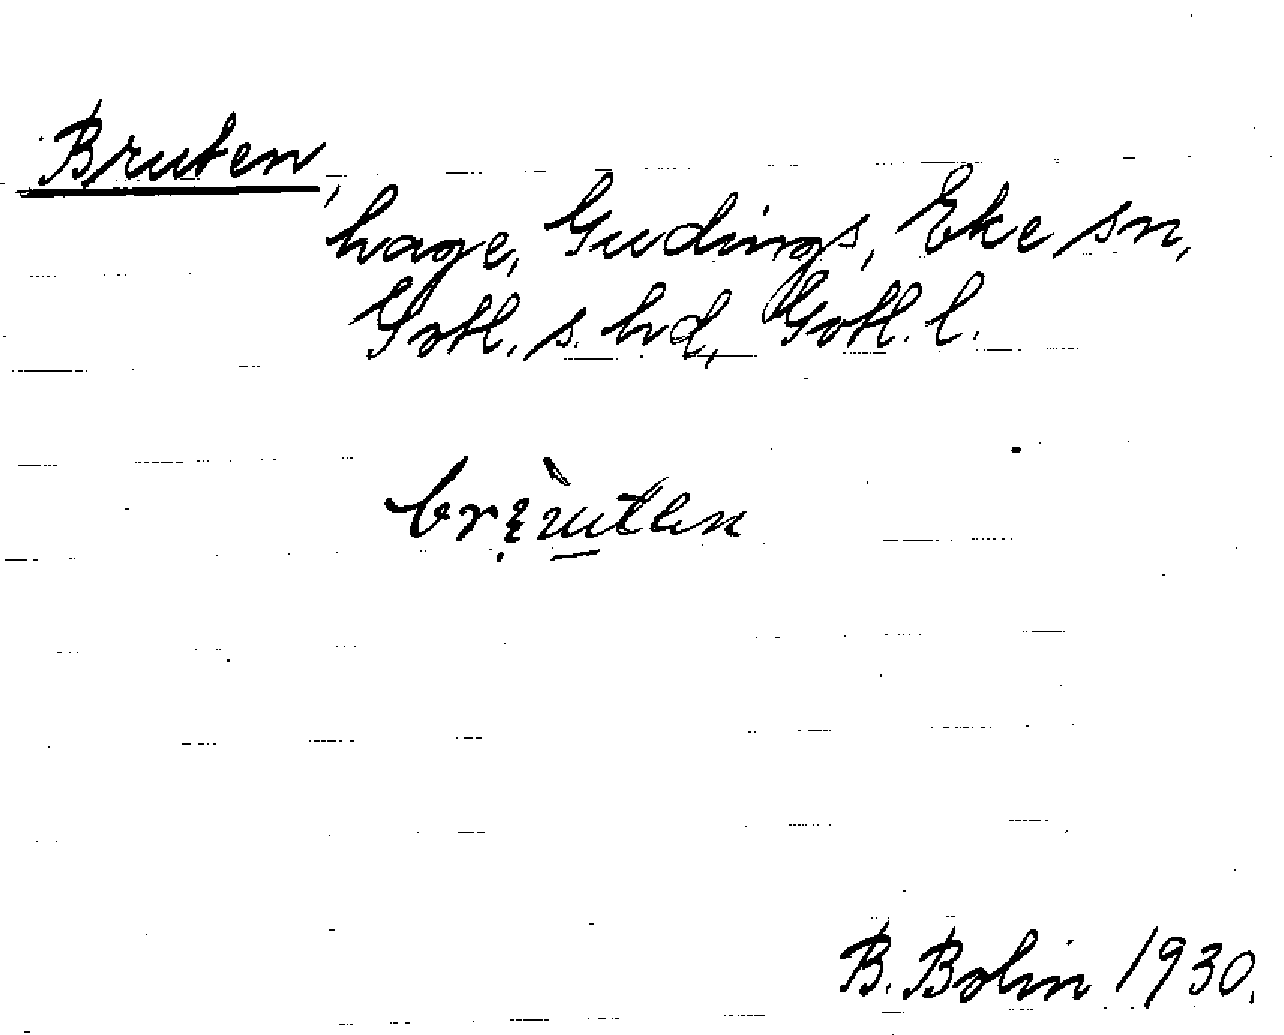 Bruten,
hage, Gudings, Eke sn,
Gotl. s. hd, Gotl. l.
B. Bolin 1930.